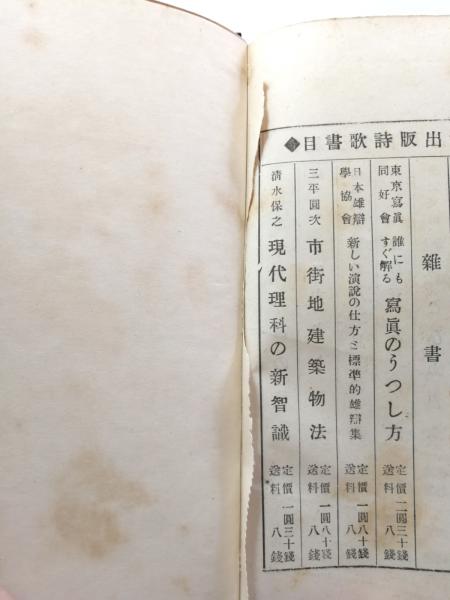 出版詩歌書目
雜書
東京寫眞同好會 誰にもすぐ解る 寫眞のうつし方 定價二圓三十錢 送料八錢
日本雄辯學協會 新しい演說の仕方と標準的雄辯集 定價一圓八十錢 送料八錢
三平圓次 市街地建築物法 定價一圓八十錢 送料八錢
淸水保之 現代理科の新智識 定價一圓三十錢 送料八錢